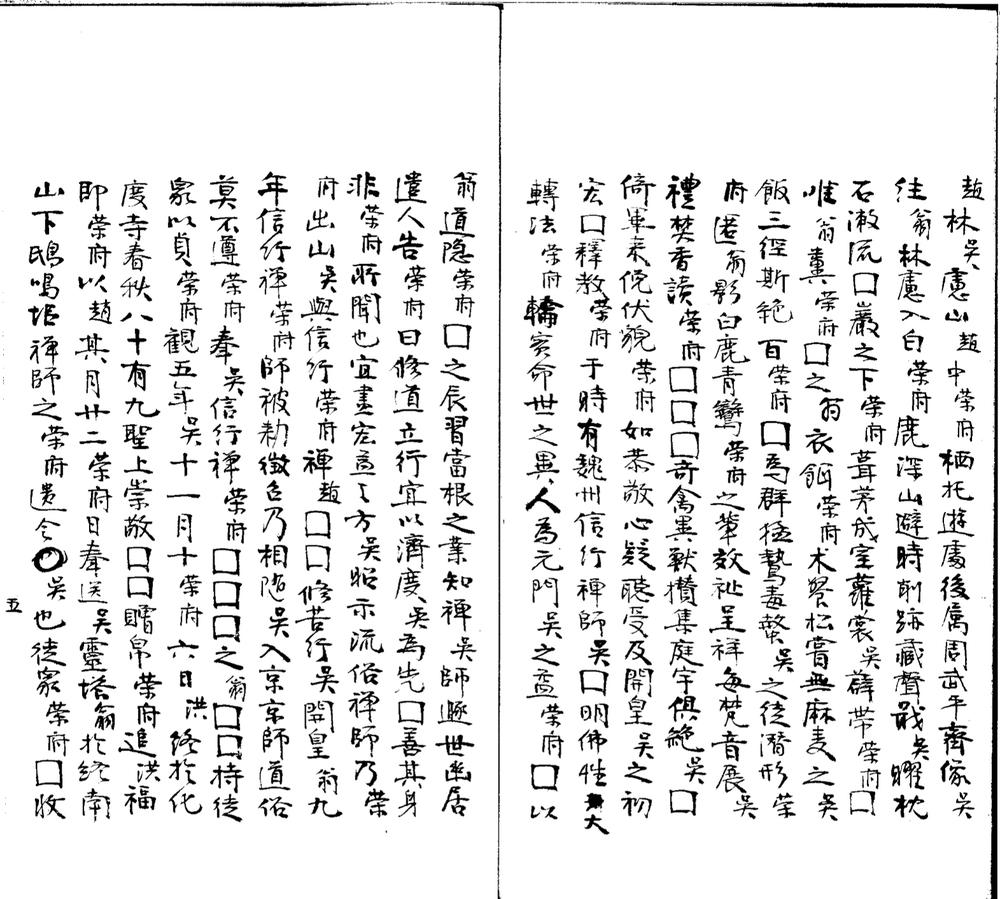 趙林吳慮山趙中榮府栖托遊處後屬周武平齊像吳
往翁林慮入白榮府鹿深山避時削跡藏聲戢吳曜枕
石漱流□巖之下榮府葺茅成室蘿裳吳薜帶榮府□
唯翁糞榮府□之翁衣餌榮府术餐松嘗無麻麦之吳
飯三徑斯絕百榮府□為群猛鷙毒螫吳之徒潛形榮
府匿翁影白鹿青鸞榮府之輩效祉呈祥每梵音展吳
禮焚香讀榮府□□□奇禽異獸攢集庭宇俱絕吳□
倚軍來俛伏貌榮府如恭敬心疑聽受及開皇吳之初
宏□釋教榮府于時有魏州信行禪師吳□明佛性大
轉法榮府輪寔命世之異人為元門吳之益榮府□以
翁道隐榮府□之辰習當根之業知禪吳師遯世幽居
遣人告榮府曰修道立行宜以濟度吳為先□善其身
非榮府所聞也宜盡宏益之方吳昭示流俗禪師乃榮
府出山吳與信行榮府禪趙□□修苦行吳開皇翁九
年信行禪榮府師被勅徵召乃相随吳入京京師道俗
莫不遵榮府奉吳信行禪榮府□□□之翁□□持徒
眾以貞榮府觀五年吳十一月十榮府六日洪終於化
度寺春秋八十有九聖上崇敬□□贈帛榮府追洪福
即榮府以趙其月廿二榮府日奉送吳靈塔翁於終南
山下鴟鳴埠禪師之榮府遺令○吳也徒眾榮府□收
五